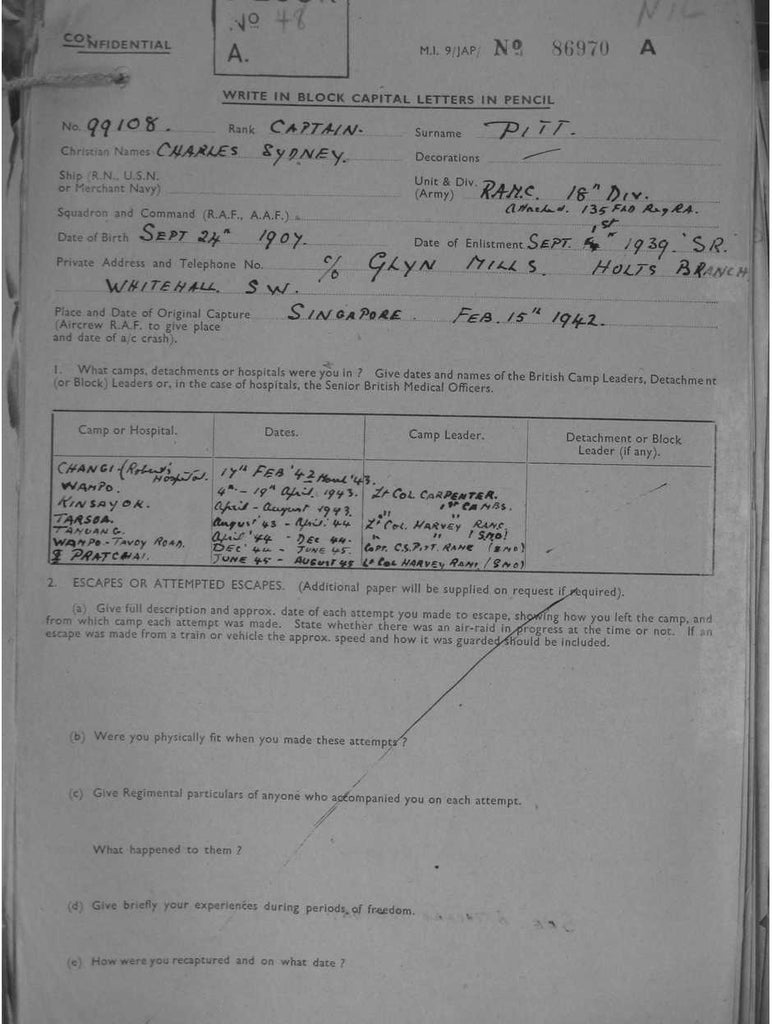 No 48
A.
NIL
CONFIDENTIAL
M.I. 9/JAP/ No 86970 A
WRITE IN BLOCK CAPITAL LETTERS IN PENCIL
No. 99108. Rank CAPTAIN. Surname PITT.
Christian Names CHARLES SYDNEY. Decorations —
Ship (R.N., U.S.N. or Merchant Navy)
Unit & Div. (Army) R.A.M.C. 18th DIV.
Attached. 135 FLD Reg RA.
Squadron and Command (R.A.F., A.A.F.)
Date of Birth SEPT 24th 1907. Date of Enlistment SEPT. 1st 1939. S.R.
Private Address and Telephone No. c/o GLYN MILLS. HOLTS BRANCH
WHITEHALL. S.W.
Place and Date of Original Capture SINGAPORE. FEB. 15th 1942.
(Aircrew R.A.F. to give place
and date of a/c crash).
1. What camps, detachments or hospitals were you in ? Give dates and names of the British Camp Leaders, Detachment
(or Block) Leaders or, in the case of hospitals, the Senior British Medical Officers.
Camp or Hospital. Dates. Camp Leader. Detachment or Block Leader (if any).
CHANGI (Roberts Hospital. 17th FEB '42 '43.
WAMPO. 4th - 19th April. 1943. Lt COL CARPENTER.
KINSAYOK. April - August 1943. " " 1st CAMBS.
TARSOA. August '43 - April '44 Lt COL. HARVEY RAMC.
TAMUANG. April '44 - DEC 44. " " (SMO)
WAMPO - TAVOY ROAD. DEC 44 - JUNE 45. Capt. C.S. PITT. RAMC (SMO)
PRATCHAI. JUNE 45 - AUGUST 45 Lt COL HARVEY RAMC (SMO)
2. ESCAPES OR ATTEMPTED ESCAPES. (Additional paper will be supplied on request if required).
(a) Give full description and approx. date of each attempt you made to escape, showing how you left the camp, and
from which camp each attempt was made. State whether there was an air-raid in progress at the time or not. If an
escape was made from a train or vehicle the approx. speed and how it was guarded should be included.
(b) Were you physically fit when you made these attempts ?
(c) Give Regimental particulars of anyone who accompanied you on each attempt.
What happened to them ?
(d) Give briefly your experiences during periods of freedom.
(e) How were you recaptured and on what date ?